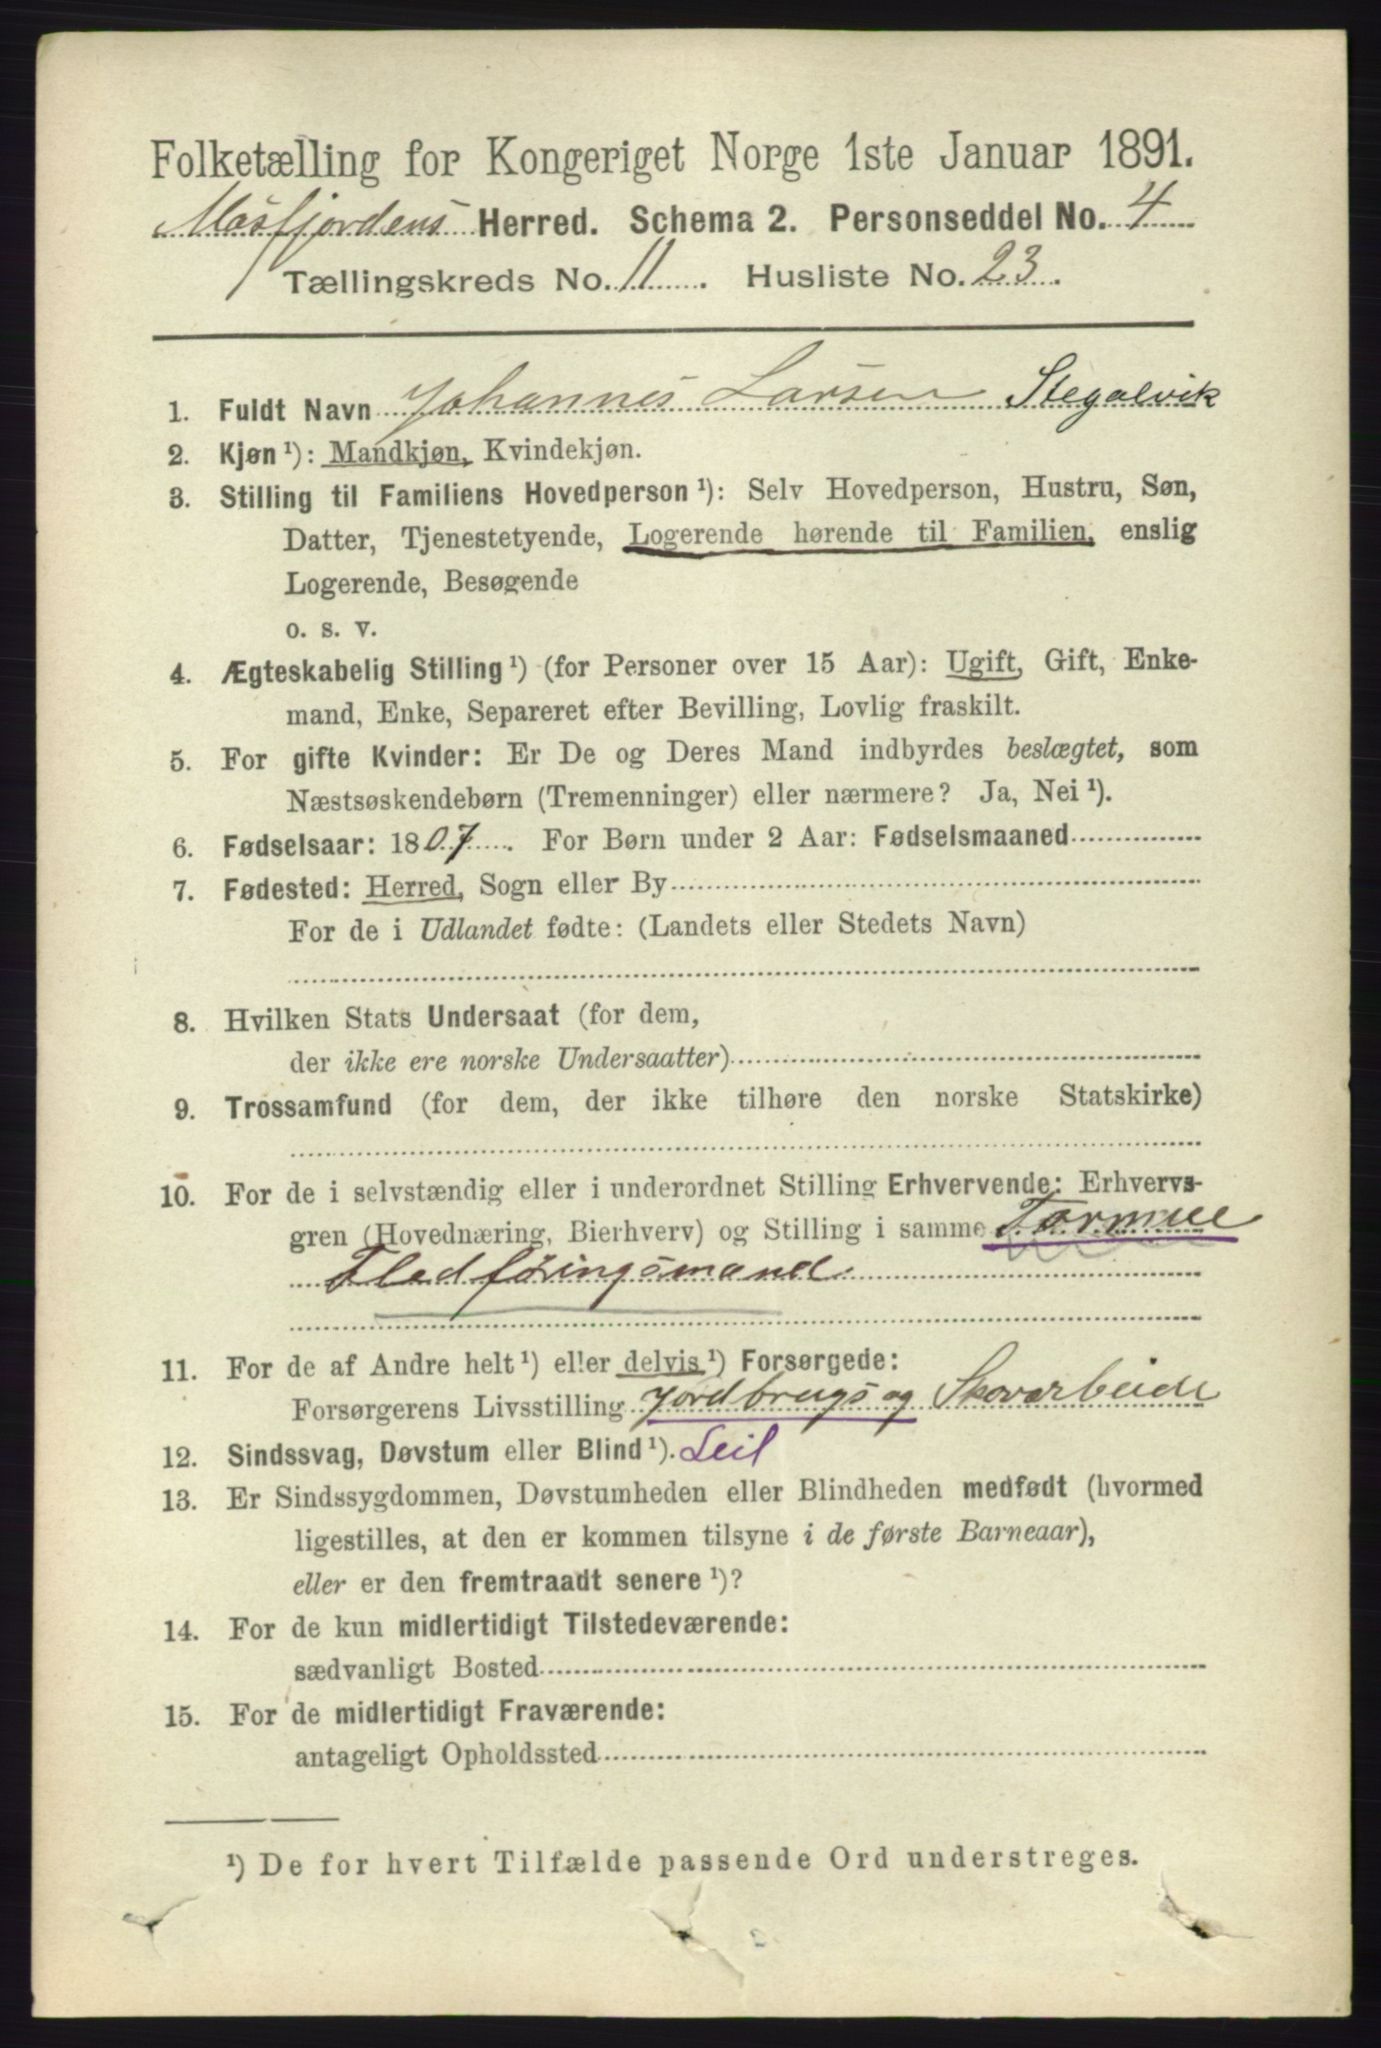 Folketælling for Kongeriget Norge 1ste Januar 1891.
Masfjordens Herred. Schema 2. Personseddel No. 4
Tællingskreds No. 11. Husliste No. 23.
1. Fuldt Navn Johannes Larsen Stegalvik
2. Kjøn ¹): Mandkjøn, Kvindekjøn.
3. Stilling til Familiens Hovedperson ¹): Selv Hovedperson, Hustru, Søn,
Datter, Tjenestetyende, Logerende hørende til Familien, enslig
Logerende, Besøgende
o. s. v.
4. Ægteskabelig Stilling ¹) (for Personer over 15 Aar): Ugift, Gift, Enke-
mand, Enke, Separeret efter Bevilling, Lovlig fraskilt.
5. For gifte Kvinder: Er De og Deres Mand indbyrdes beslægtet, som
Næstsøskendebørn (Tremenninger) eller nærmere? Ja, Nei ¹).
6. Fødselsaar: 1807. For Børn under 2 Aar: Fødselsmaaned
7. Fødested: Herred, Sogn eller By
For de i Udlandet fødte: (Landets eller Stedets Navn)
8. Hvilken Stats Undersaat (for dem,
der ikke ere norske Undersaatter)
9. Trossamfund (for dem, der ikke tilhøre den norske Statskirke)
10. For de i selvstændig eller i underordnet Stilling Erhvervende: Erhvervs-
gren (Hovednæring, Bierhverv) og Stilling i samme
Fledføringsmand.
11. For de af Andre helt ¹) eller delvis ¹) Forsørgede:
Forsørgerens Livsstilling Jordbrugs og Skovarbeide
12. Sindssvag, Døvstum eller Blind ¹).
13. Er Sindssygdommen, Døvstumheden eller Blindheden medfødt (hvormed
ligestilles, at den er kommen tilsyne i de første Barneaar),
eller er den fremtraadt senere ¹)?
14. For de kun midlertidigt Tilstedeværende:
sædvanligt Bosted
15. For de midlertidigt Fraværende:
antageligt Opholdssted
¹) De for hvert Tilfælde passende Ord understreges.